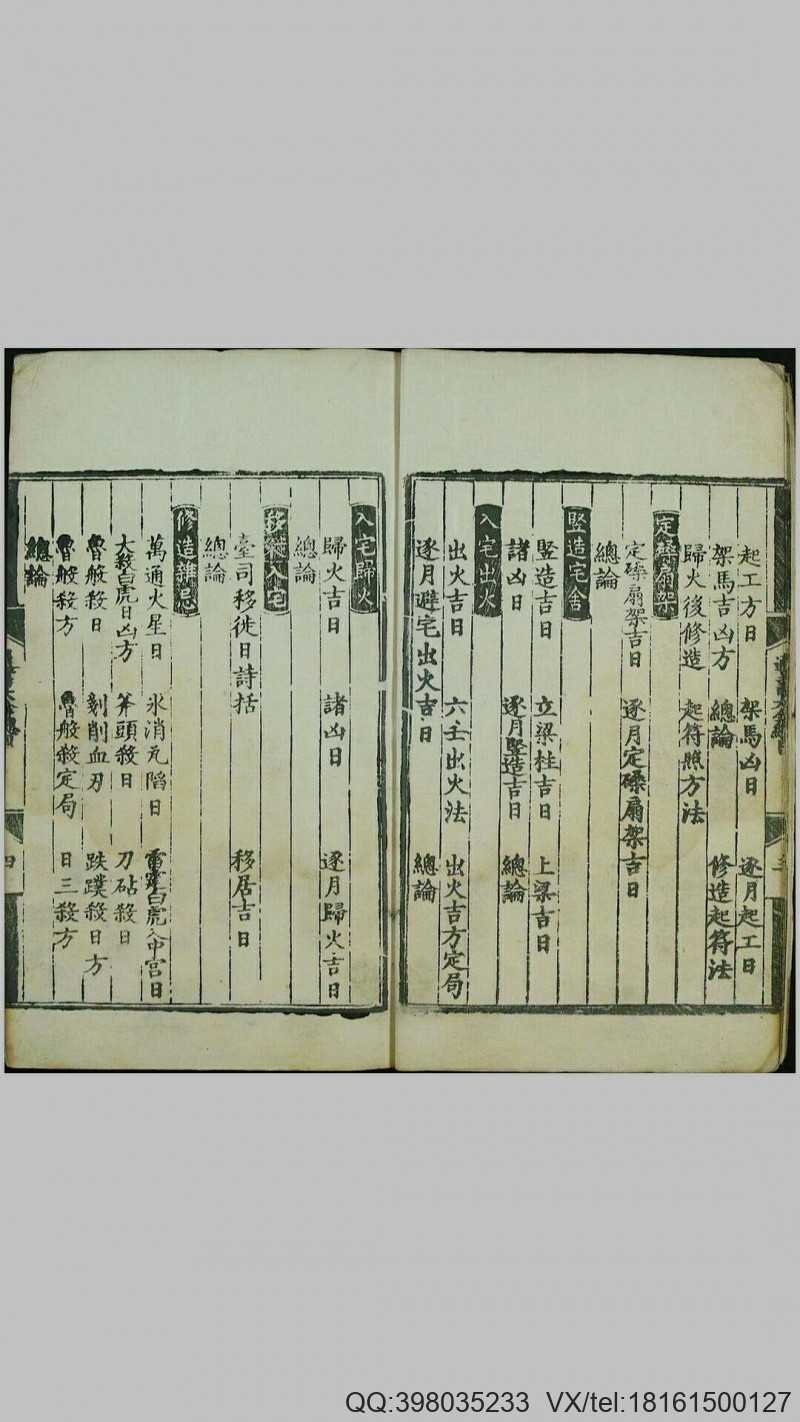 起工方日　架馬凶日　逐月起工日
架馬吉凶方　總論　修造起符法
歸火後修造　起符照方法
定磉扇架
定磉扇架吉日　逐月定磉扇架吉日
總論
竪造宅舍
竪造吉日　立梁柱吉日　上梁吉日
諸凶日　逐月竪造吉日　總論
入宅出火
出火吉日　六壬出火法　出火吉方定局
逐月避宅出火吉日　總論
入宅歸火
歸火吉日　諸凶日　逐月歸火吉日
總論
移徙入宅
臺司移徙日詩括　移居吉日
總論
修造雜忌
萬通火星日　氷消瓦陷日　雷霆白虎入中宮日
大殺白虎日凶方　斧頭殺日　刀砧殺日
魯般殺日　剗削血刃　跌蹼殺日方
魯般殺方　魯般殺定局　日三殺方
總論
四
QQ:398035233 VX/tel:18161500127